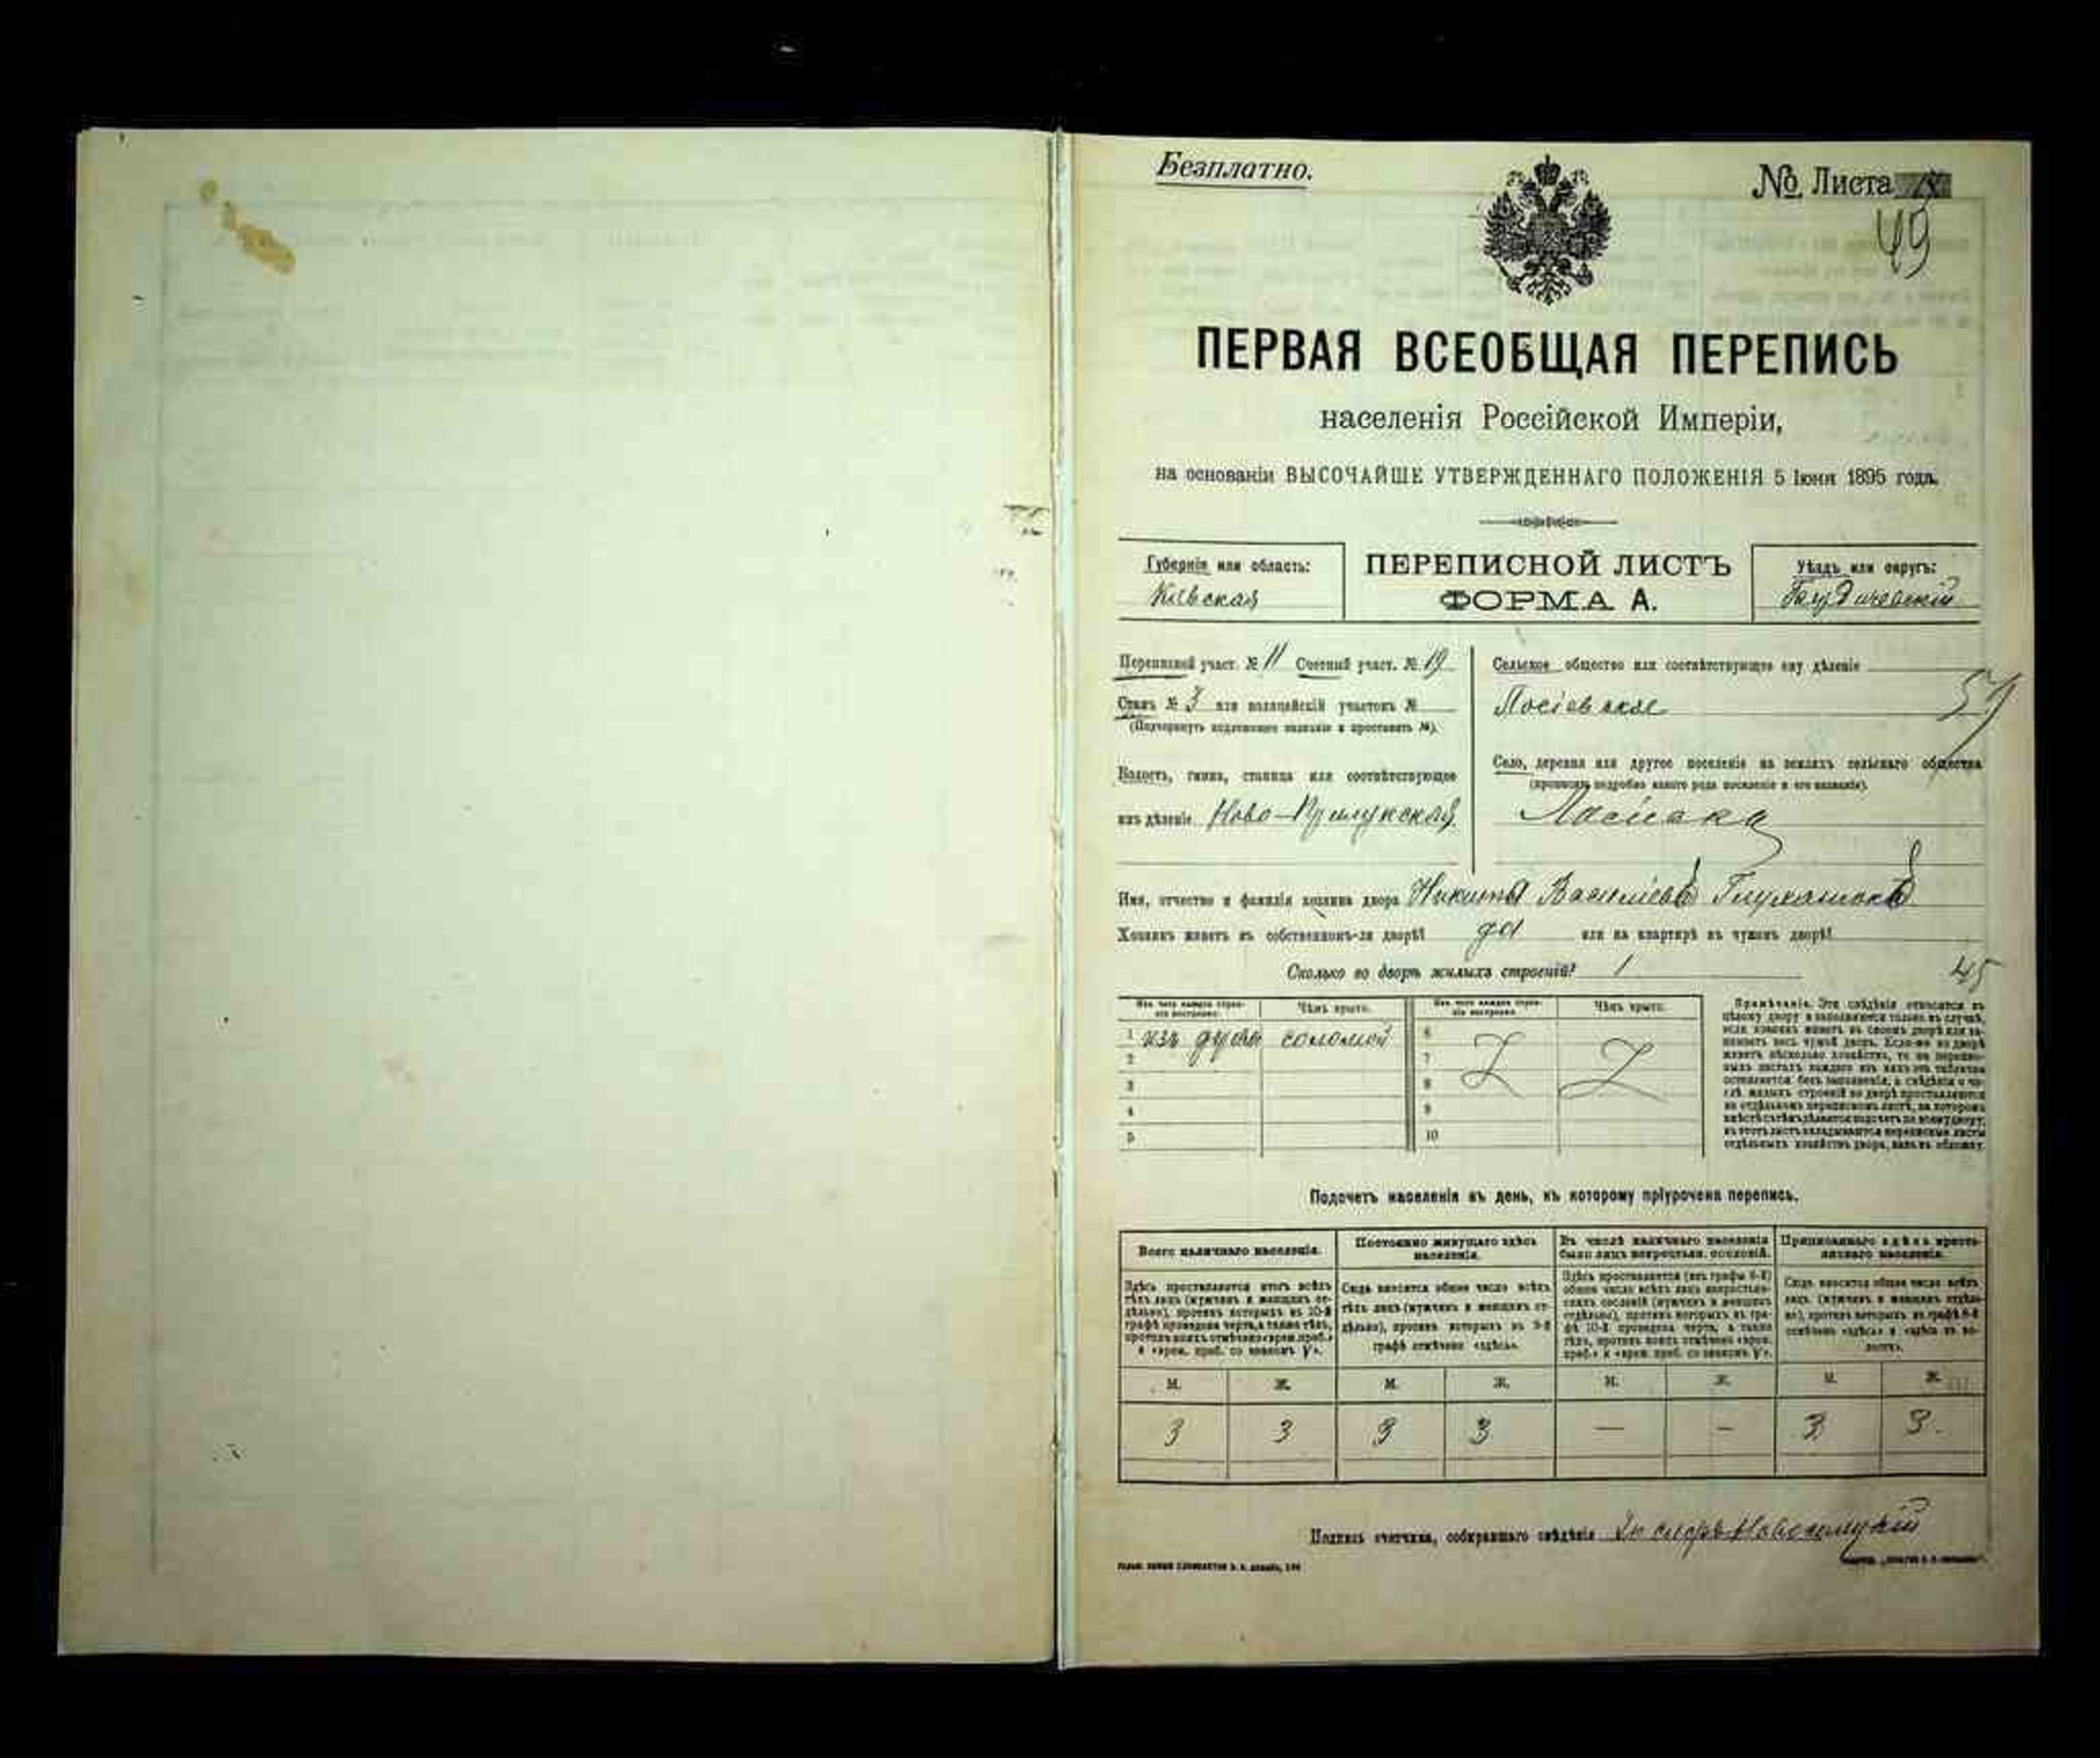 Безплатно.
№ Листа
49
ПЕРВАЯ ВСЕОБЩАЯ ПЕРЕПИСЬ
населенія Россійской Имперіи,
на основаніи ВЫСОЧАЙШЕ УТВЕРЖДЕННАГО ПОЛОЖЕНІЯ 5 Іюня 1895 года.
Губернія или область:
Кіевская
ПЕРЕПИСНОЙ ЛИСТЪ
ФОРМА А.
Уѣздъ или округъ:
Бердичевскій
Переписной участ. № 11 Счетный участ. № 19
Станъ № 3 или полицейскій участокъ №
(Подчеркнуть подлежащее названіе и проставить №).
Волость, гмина, станица или соотвѣтствующее
имъ дѣленіе Ново-Прилукская
Сельское общество или соотвѣтствующее ему дѣленіе
Лосіевское
Село, деревня или другое поселеніе на земляхъ сельскаго общества
(прописать подробно какого рода поселеніе и его названіе).
Имя, отчество и фамилія хозяина двора Никита Васильевъ
Хозяинъ живетъ въ собственномъ-ли дворѣ? да или на квартирѣ въ чужомъ дворѣ?
Сколько во дворѣ жилыхъ строеній? 1
45
Изъ чего каждое строеніе построено. Чѣмъ крыто. Изъ чего каждое строеніе построено. Чѣмъ крыто.
1 изъ соломой 6
2 7
3 8
4 9
5 10
Примѣчаніе. Эти свѣдѣнія относятся къ
цѣлому двору и заполняются только въ случаѣ,
если хозяинъ живетъ въ своемъ дворѣ или за-
нимаетъ весь чужой дворъ. Если-же во дворѣ
живетъ нѣсколько хозяйствъ, то на перепис-
ныхъ листахъ каждаго изъ нихъ эта табличка
оставляется безъ заполненія, а свѣдѣнія о чи-
слѣ жилыхъ строеній во дворѣ проставляются
на отдѣльномъ переписномъ листѣ, на которомъ
вмѣстѣ съ тѣмъ дѣлается подсчетъ по всему двору;
въ этотъ листъ вкладываются переписные листы
отдѣльныхъ хозяйствъ двора, какъ въ обложку.
Подсчетъ населенія въ день, къ которому пріурочена перепись.
Всего наличнаго населенія.
Постоянно живущаго здѣсь
населенія.
Въ числѣ наличнаго населенія
было лицъ некрестьян. сословій.
Приписаннаго здѣсь кресть-
янскаго населенія.
Здѣсь проставляется итогъ всѣхъ
тѣхъ лицъ (мужчинъ и женщинъ от-
дѣльно), противъ которыхъ въ 10-й
графѣ проведена черта, а также тѣхъ,
противъ коихъ отмѣчено «врем. преб.»
и «врем. преб. со знакомъ V».
Сюда вносится общее число всѣхъ
тѣхъ лицъ (мужчинъ и женщинъ от-
дѣльно), противъ которыхъ въ 9-й
графѣ отмѣчено «здѣсь».
Здѣсь проставляется (изъ графы 6-й)
общее число всѣхъ лицъ некрестьян-
скихъ сословій (мужчинъ и женщинъ
отдѣльно), противъ которыхъ въ гра-
фѣ 10-й проведена черта, а также
тѣхъ, противъ коихъ отмѣчено «врем.
преб.» и «врем. преб. со знакомъ V».
Сюда вносится общее число всѣхъ
лицъ (мужчинъ и женщинъ отдѣль-
но), противъ которыхъ въ графѣ 8-й
отмѣчено «здѣсь» и «здѣсь въ во-
лости».
М. Ж. М. Ж. М. Ж. М. Ж.
3 3 3 3 — — 3 3.
Подпись счетчика, собиравшаго свѣдѣнія